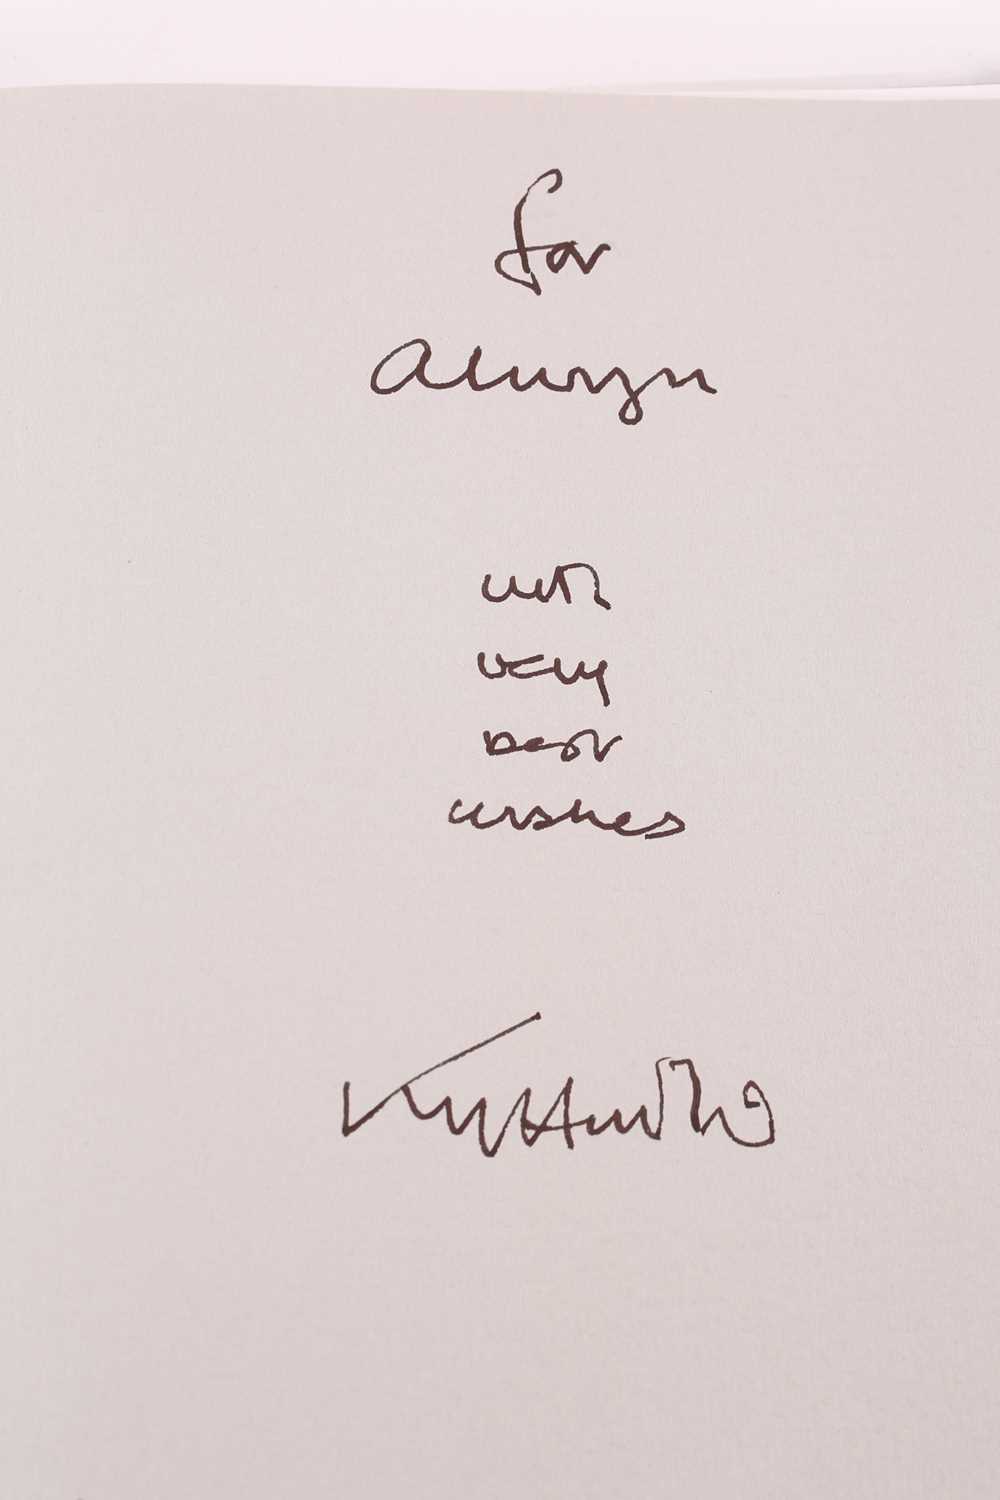 for
Alwyn
with
very
best
wishes